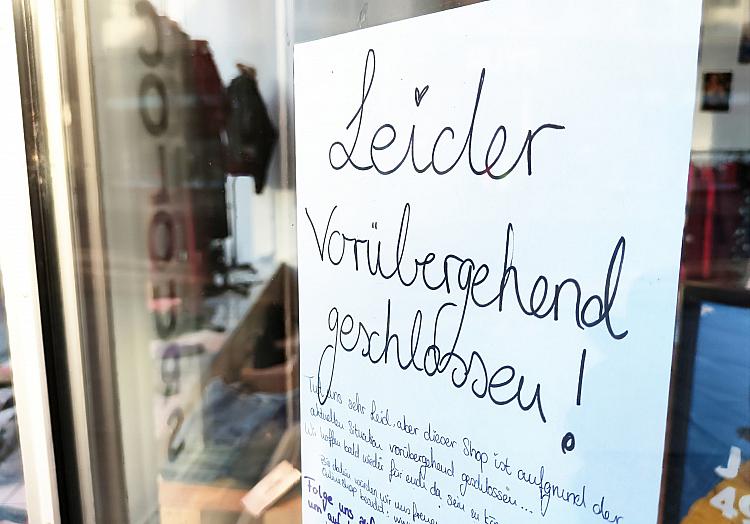 Leider
Vorübergehend
geschlossen!
Tut uns sehr leid, aber dieser Shop ist aufgrund der
aktuellen Situation vorübergehend geschlossen...
Wir hoffen bald wieder für euch da sein zu
Bis dahin würden wir uns freuen
Onlineshop
Folge uns auf
um auf